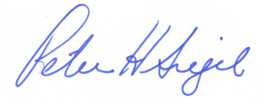 Peter H Siegel